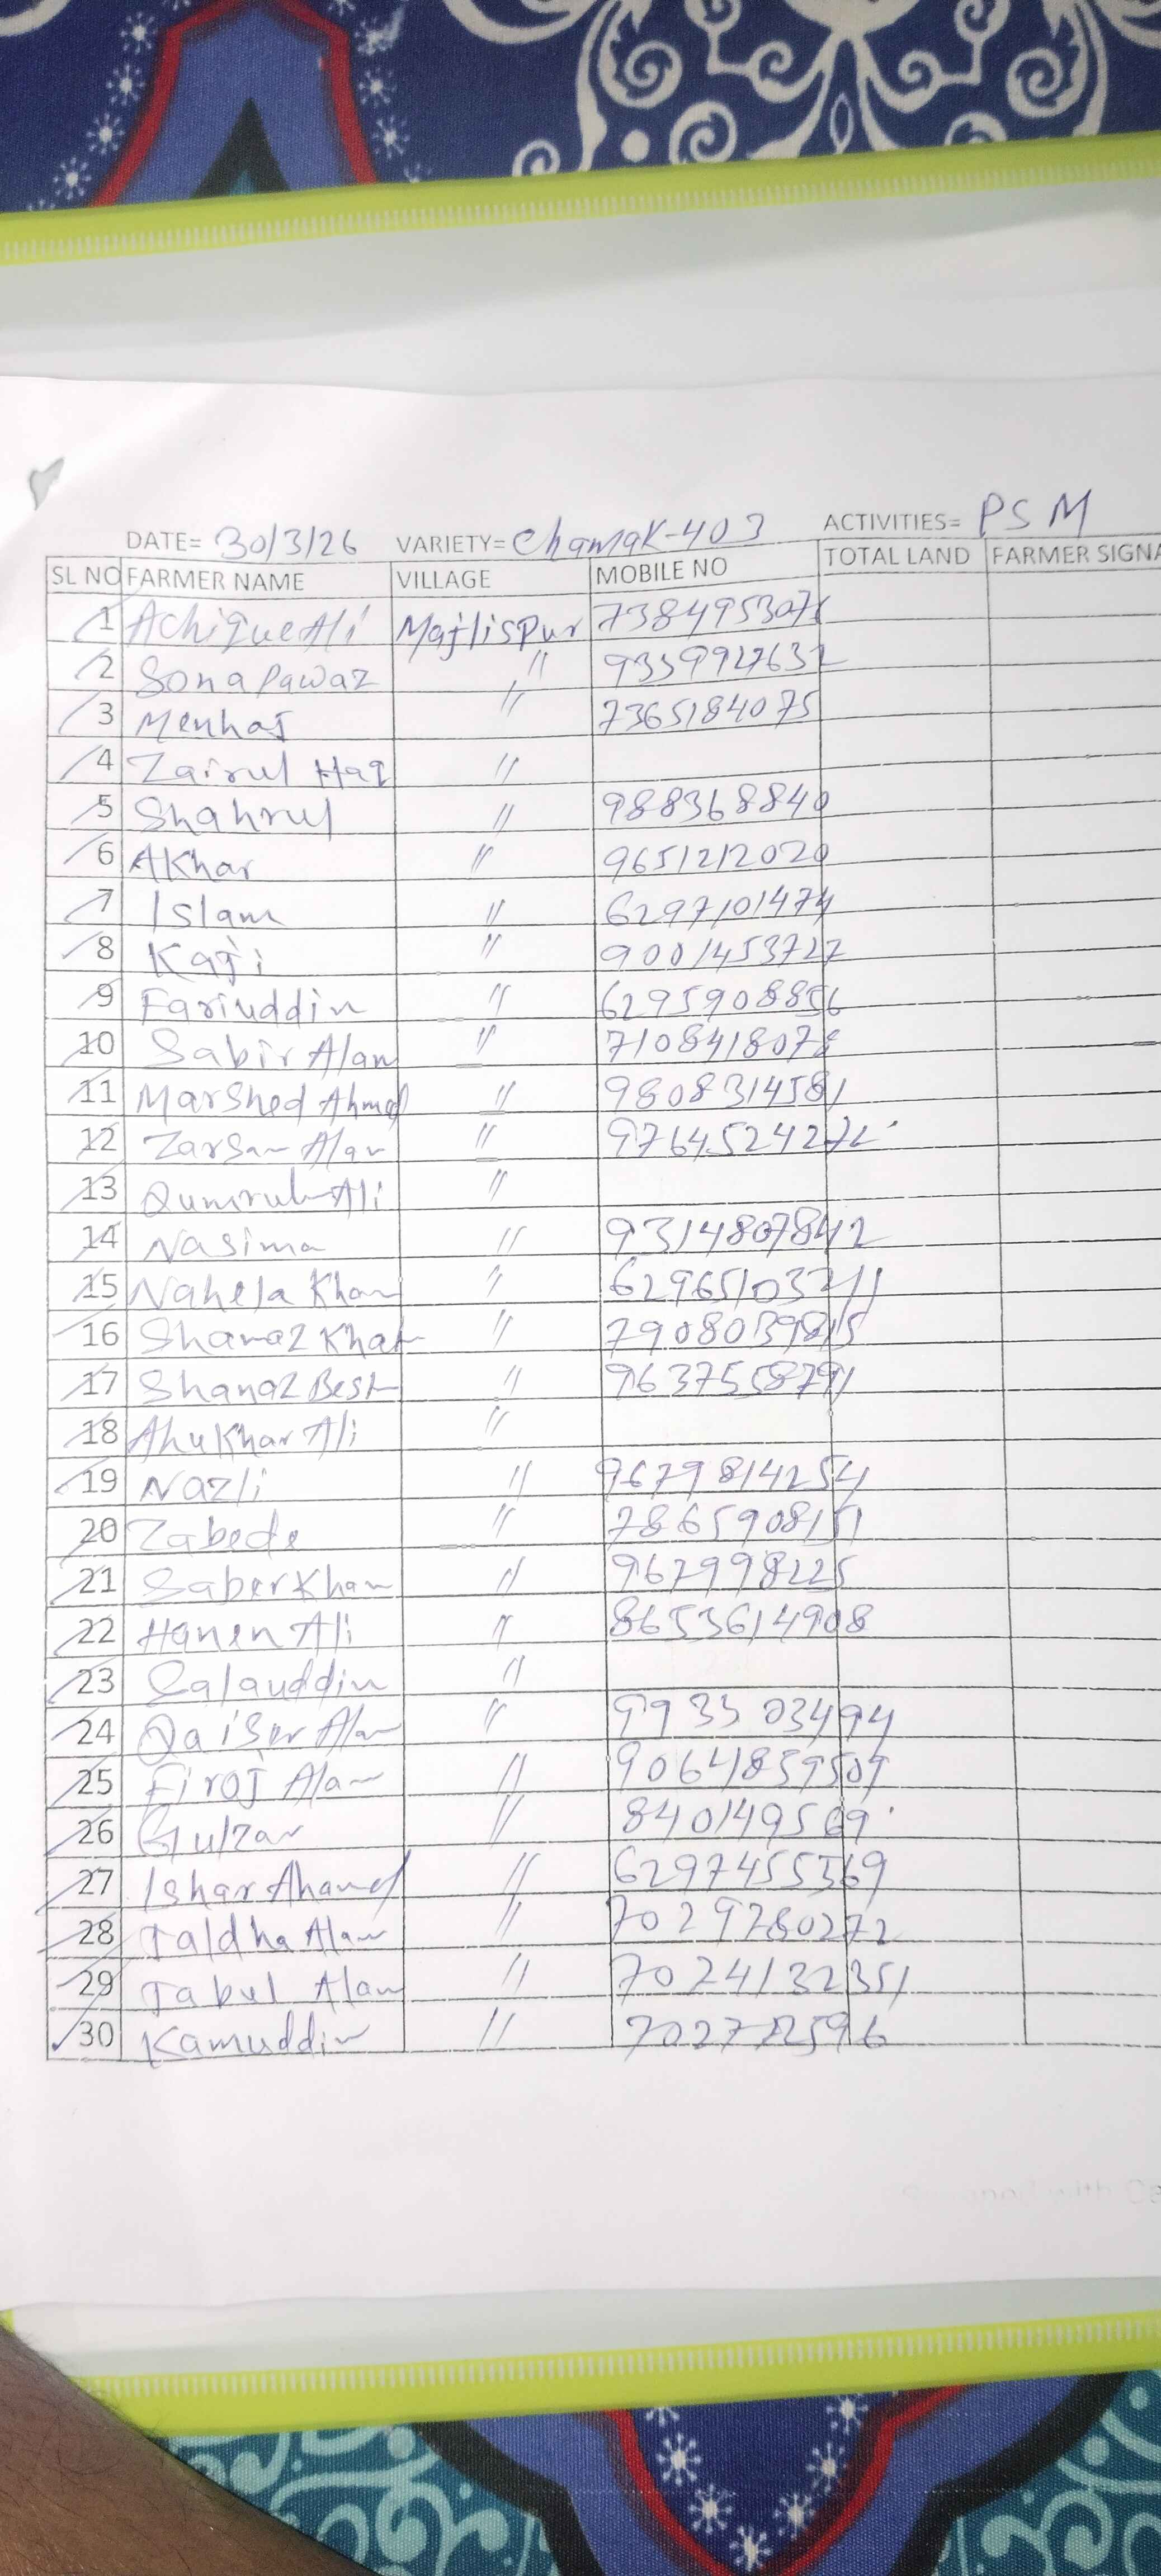 DATE= 30/3/26 VARIETY= Chamak-403 ACTIVITIES= PSM
SL NO FARMER NAME VILLAGE MOBILE NO TOTAL LAND FARMER SIGNA
1 Achique Ali Majlispur 738495307
2 Sona Pawaz " 9339927632
3 Menhaj " 7365184075
4 Zairul Haq "
5 Shahrul " 988368840
6 Akhar " 9651212020
7 Islam " 6297101474
8 Kaji " 9001453727
9 Fariuddin " 6295908856
10 Sabir Alam " 7108418078
11 Marshed Ahmed " 9808314581
12 Zarsan Alam " 9764524272
13 Qumrul Ali "
14 Nasima " 9314807842
15 Nahela Khan " 62965103211
16 Shanaz Khat " 7908039815
17 Shanaz Besh " 9637558791
18 Ahukhar Ali "
19 Nazli " 9679814254
20 Zabede " 7865908151
21 Saber Khan " 967998225
22 Hanen Ali " 8653614908
23 Salauddin "
24 Qaiser Alam " 9933503494
25 Firoj Alam " 9064859509
26 Gulzar " 840149569
27 Ishar Ahamed " 6297455369
28 Taldha Alam " 7029780272
29 Tabul Alam " 7024132351
30 Kamuddin "